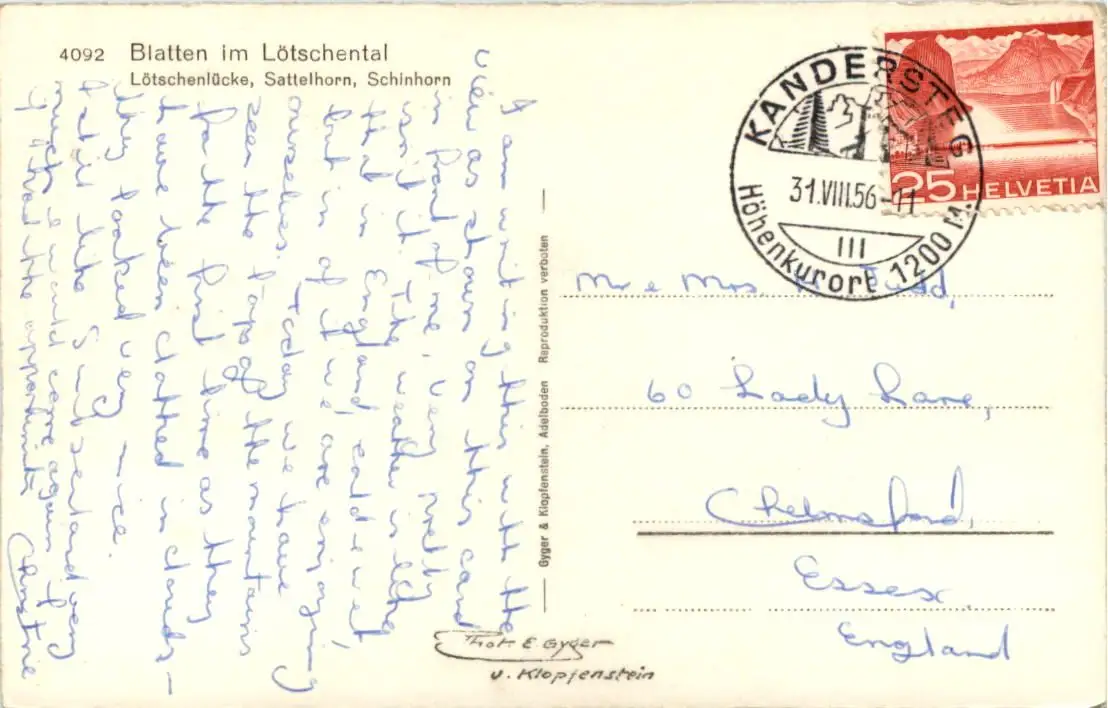 4092 Blatten im Lötschental
Lötschenlücke, Sattelhorn, Schinhorn
I am writing this with the
view as shown on this card
in front of me, very pretty
isn't it. The weather is like
that in England cold & wet
but in of it we are enjoying
ourselves. Today we have
seen the tops of the mountains
for the first time as they
have been clothed in clouds –
they looked very – nice.
I still like Switzerland very
much & would come again if
I had the opportunity. Christine
Gyger & Klopfenstein, Adelboden Reproduktion verboten
KANDERSTEG
31.VIII.56-11
III
Höhenkurort 1200 M.
25 HELVETIA
Mr & Mrs Judd,
60 Lady Lane,
Chelmsford,
Essex.
England
Phot. E. Gyger
u. Klopfenstein